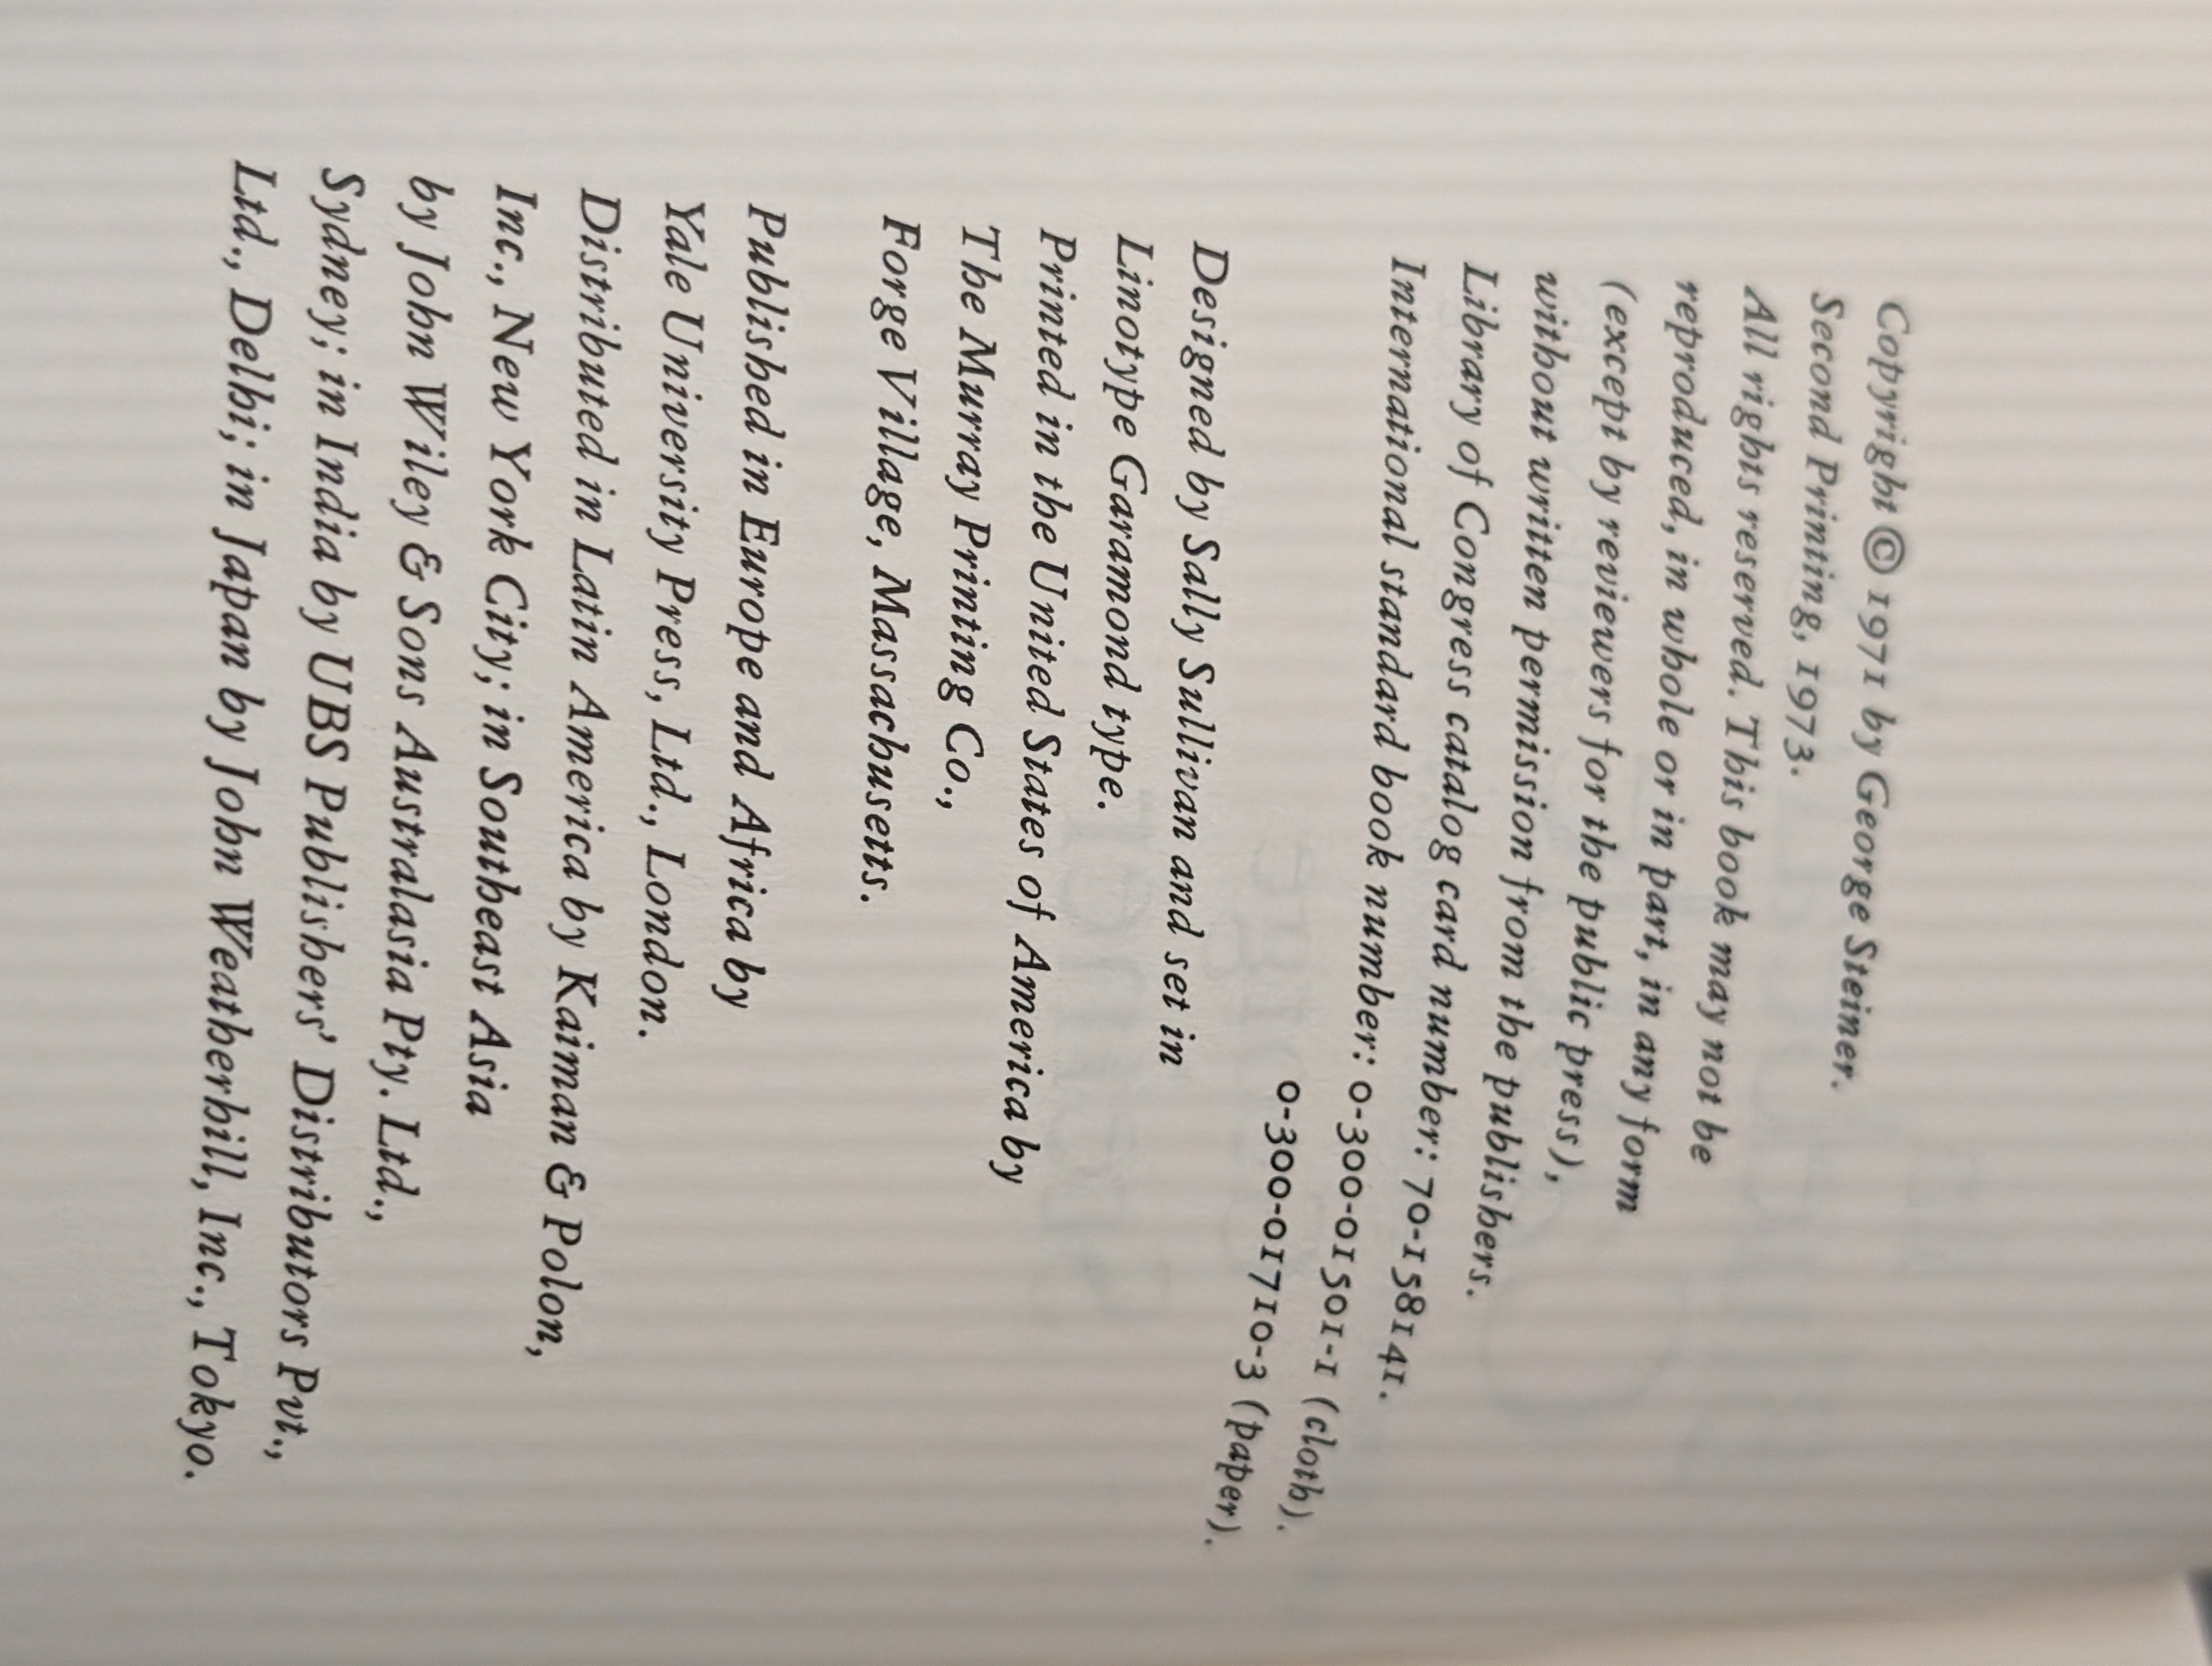 Copyright © 1971 by George Steiner.
Second Printing, 1973.
All rights reserved. This book may not be
reproduced, in whole or in part, in any form
(except by reviewers for the public press),
without written permission from the publishers.
Library of Congress catalog card number: 70-158141.
International standard book number: 0-300-01501-1 (cloth).
0-300-01710-3 (paper).
Designed by Sally Sullivan and set in
Linotype Garamond type.
Printed in the United States of America by
The Murray Printing Co.,
Forge Village, Massachusetts.
Published in Europe and Africa by
Yale University Press, Ltd., London.
Distributed in Latin America by Kaiman & Polon,
Inc., New York City; in Southeast Asia
by John Wiley & Sons Australasia Pty. Ltd.,
Sydney; in India by UBS Publishers' Distributors Pvt.,
Ltd., Delhi; in Japan by John Weatherhill, Inc., Tokyo.